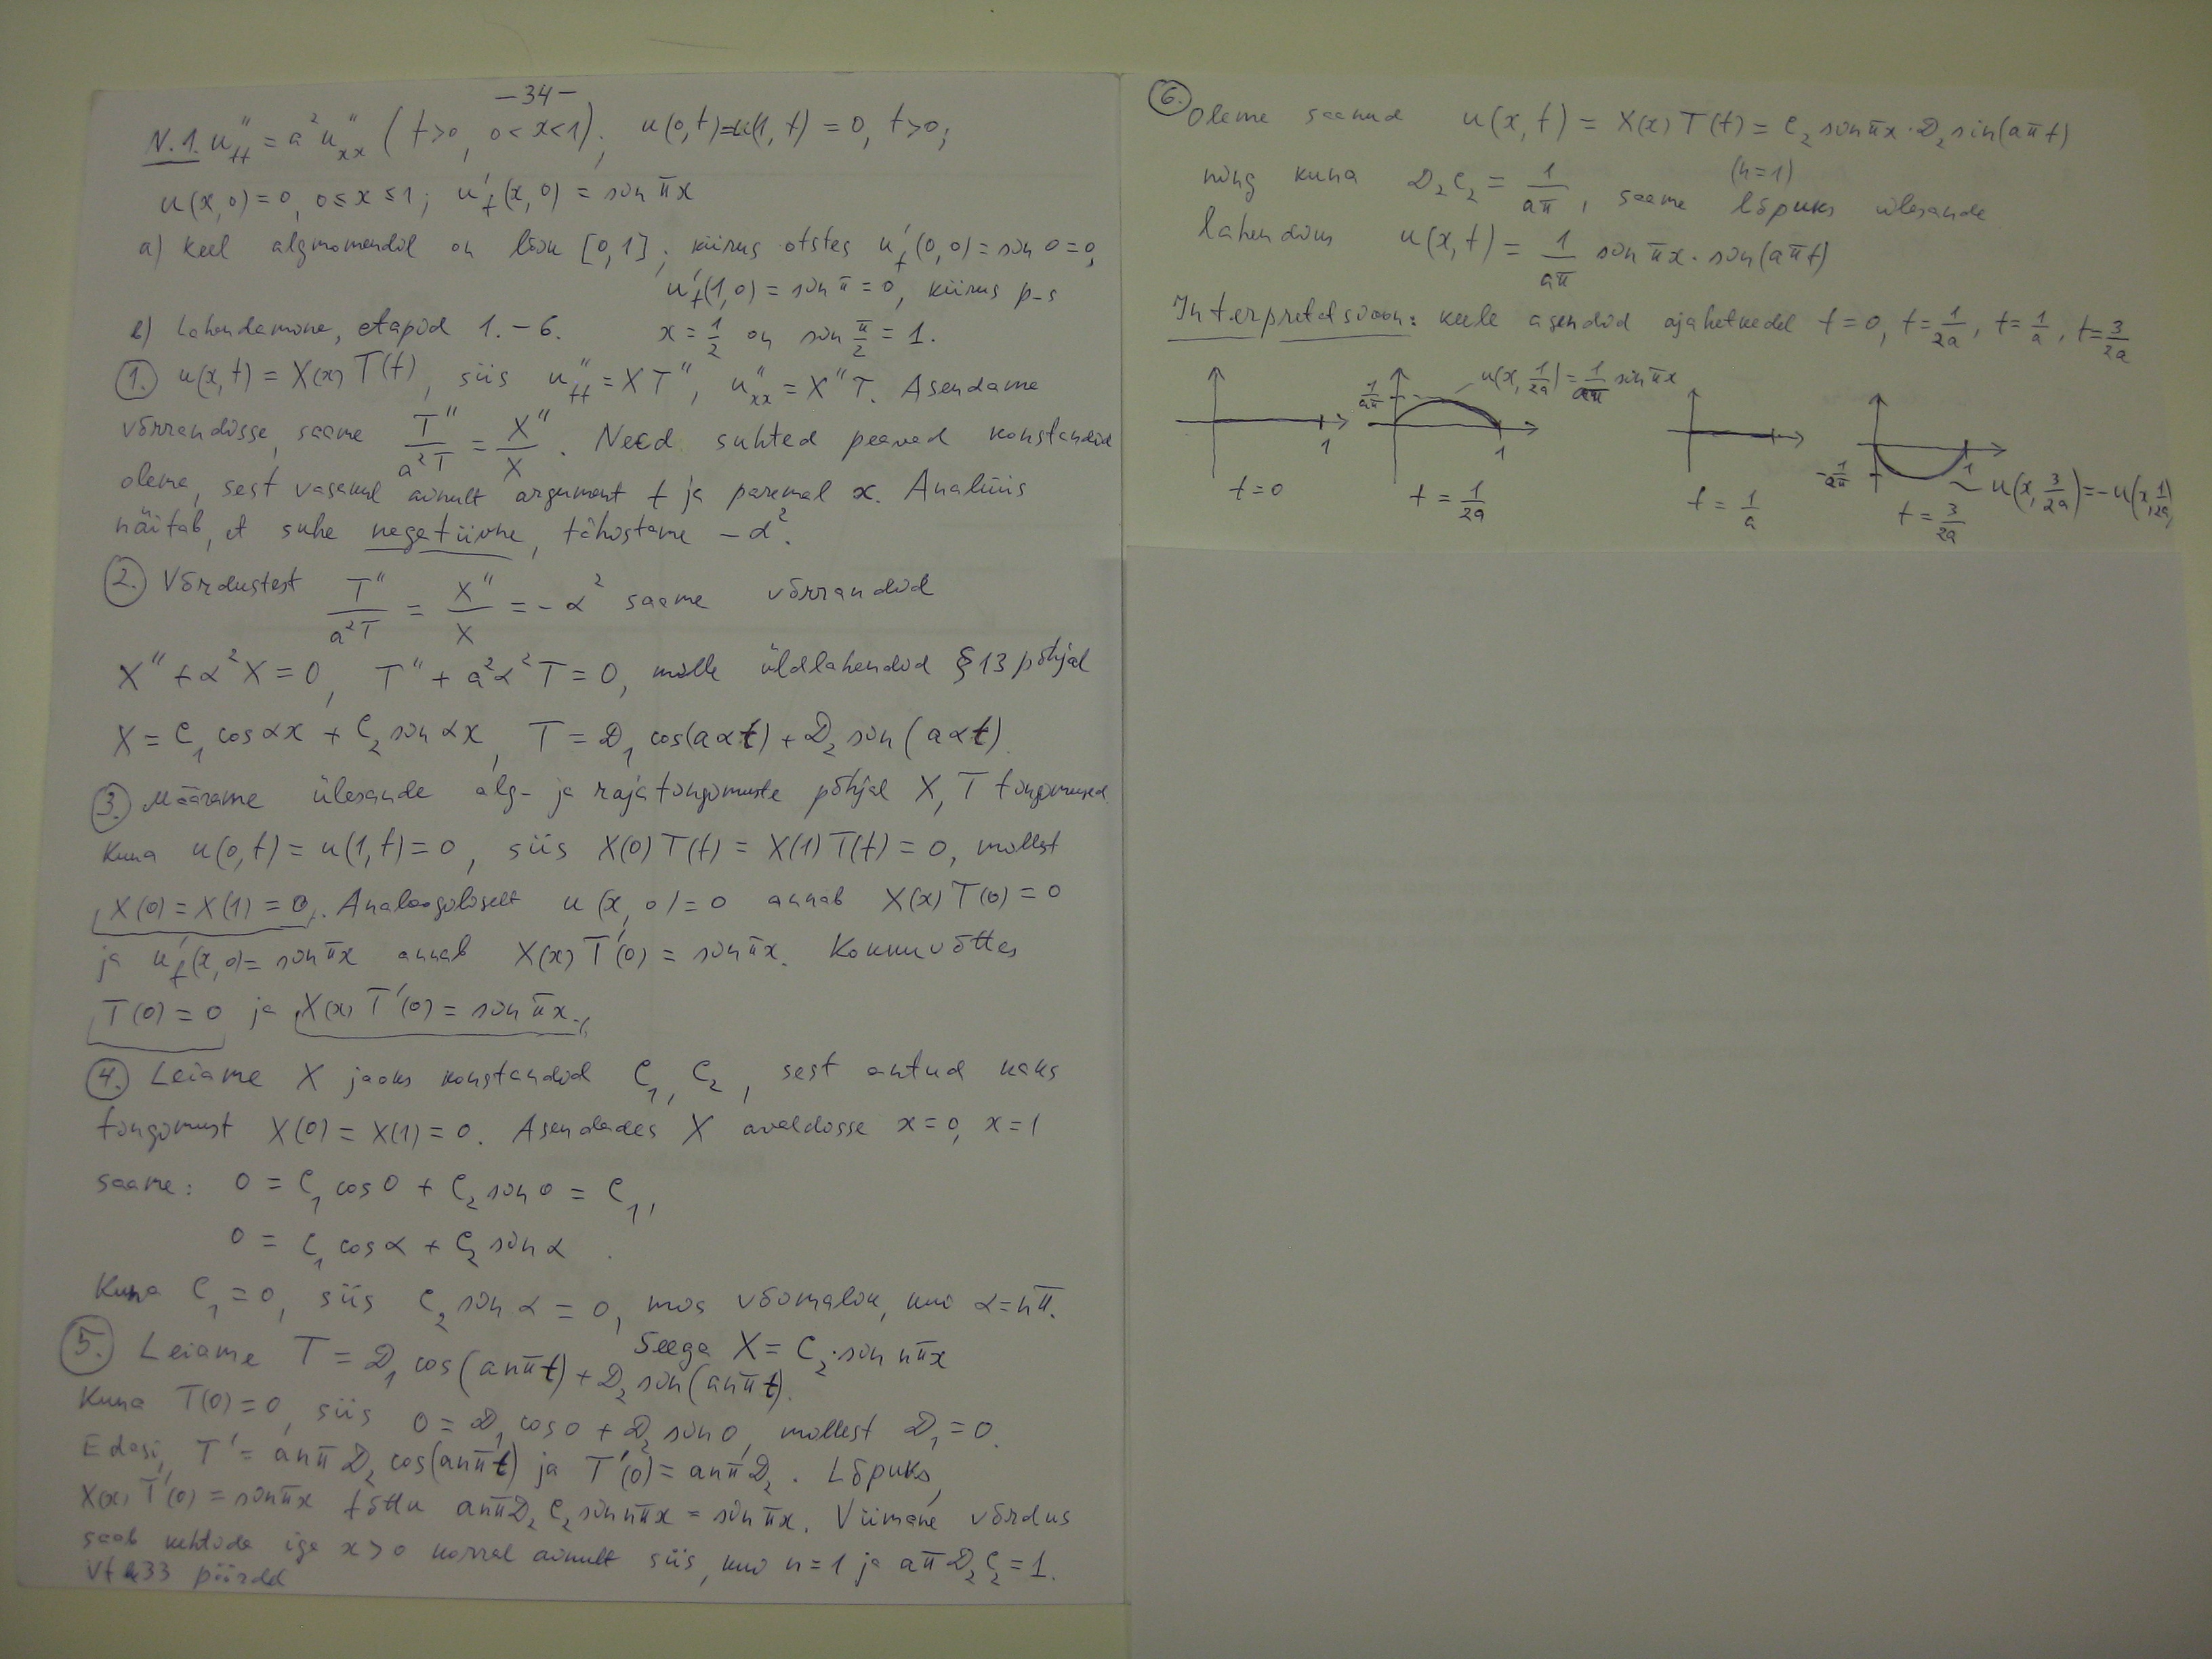 —34—
N.1. u''_tt = a² u''_xx (t>0, 0<x<1); u(0,t)=u(1,t) = 0, t>0;
u(x,0)=0, 0≤x≤1; u'_t(x,0) = sin πx
a) keel algmomendil on lõik [0,1]; kiirus otstes u'_t(0,0) = sin 0 = 0,
u'_t(1,0) = sin π = 0, kiirus p-s
b) Lahendamine, etapid 1.–6. x = 1/2 on sin π/2 = 1.
1. u(x,t) = X(x) T(t), siis u''_tt = XT'', u''_xx = X''T. Asendame
võrrandisse, saame T''/(a²T) = X''/X. Need suhted peavad konstandid
olema, sest vasakul ainult argument t ja paremal x. Analüüs
näitab, et suhe negatiivne, tähistame −α².
2. Võrdustest T''/(a²T) = X''/X = −α² saame võrrandid
X'' + α²X = 0, T'' + a²α²T = 0, mille üldlahendid §13 põhjal
X = C₁ cos αx + C₂ sin αx, T = D₁ cos(aαt) + D₂ sin(aαt).
3. Määrame ülesande alg- ja rajatingimuste põhjal X, T tingimused
Kuna u(0,t) = u(1,t) = 0, siis X(0)T(t) = X(1)T(t) = 0, millest
X(0) = X(1) = 0. Analoogiliselt u(x,0) = 0 annab X(x)T(0) = 0
ja u'_t(x,0) = sin πx annab X(x)T'(0) = sin πx. Kokkuvõttes
T(0) = 0 ja X(x)T'(0) = sin πx.
4. Leiame X jaoks konstandid C₁, C₂, sest antud kaks
tingimust X(0) = X(1) = 0. Asendades X avaldisse x=0, x=1
saame: 0 = C₁ cos 0 + C₂ sin 0 = C₁,
0 = C₁ cos α + C₂ sin α.
Kuna C₁ = 0, siis C₂ sin α = 0, mis võimalik, kui α = nπ.
Seega X = C₂·sin nπx
5. Leiame T = D₁ cos(anπt) + D₂ sin(anπt).
Kuna T(0) = 0, siis 0 = D₁ cos 0 + D₂ sin 0, millest D₁ = 0.
Edasi, T' = anπD₂ cos(anπt) ja T'(0) = anπD₂. Lõpuks,
X(x)T'(0) = sin πx tõttu anπD₂C₂ sin nπx = sin πx. Viimane võrdus
saab kehtida iga x>0 korral ainult siis, kui n=1 ja aπD₂C₂ = 1.
Vt lk 33 pöördel
6. Oleme saanud u(x,t) = X(x)T(t) = C₂ sin πx · D₂ sin(aπt)
(n=1)
ning kuna D₂C₂ = 1/(aπ), saame lõpuks ülesande
lahendiks u(x,t) = 1/(aπ) sin πx · sin(aπt)
Interpretatsioon: keele asendid ajahetkedel t=0, t=1/2a, t=1/a, t=3/2a
1/aπ u(x, 1/2a) = 1/aπ sin πx
1 1 1
−1/aπ u(x, 3/2a) = −u(x, 1/2a)
t=0 t = 1/2a t = 1/a t = 3/2a